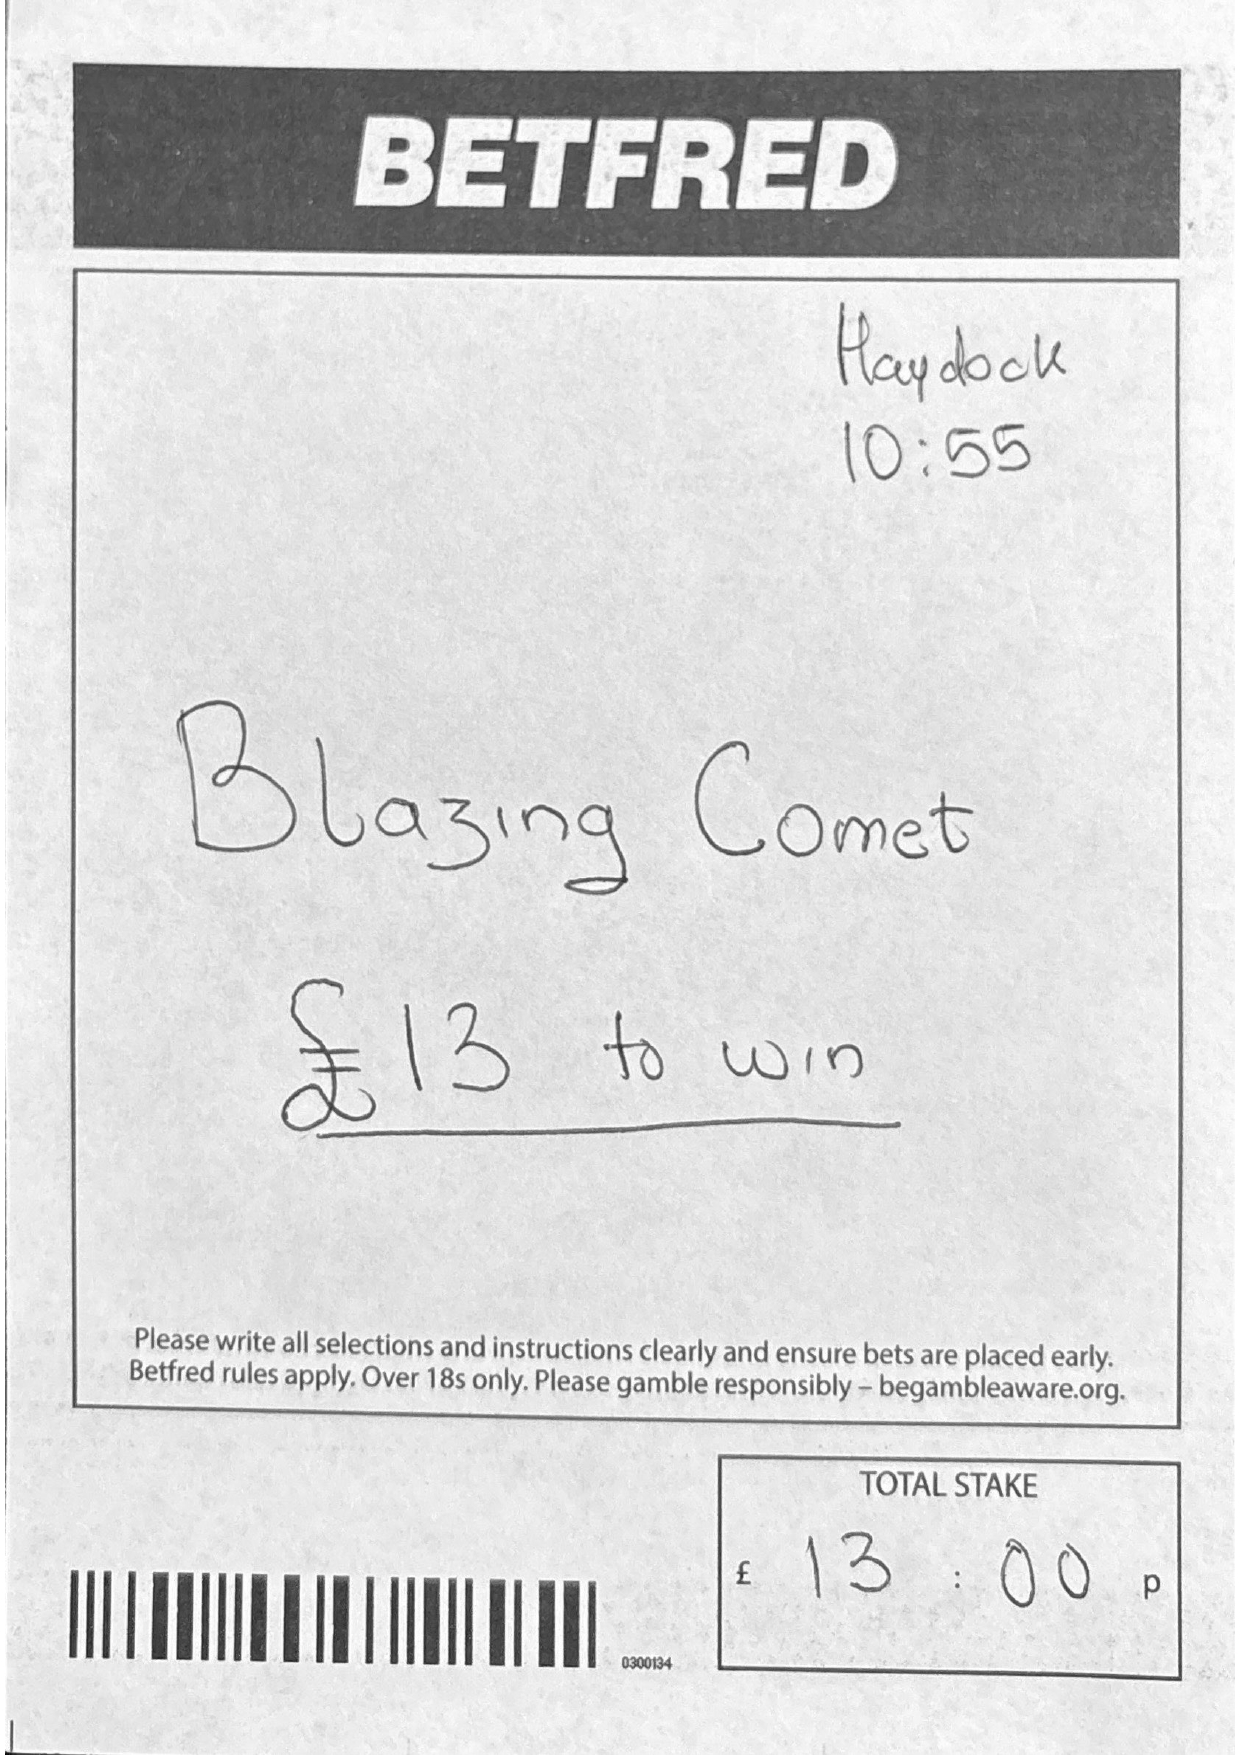 BETFRED
Haydock
10:55
Blazing Comet
£13 to win
Please write all selections and instructions clearly and ensure bets are placed early.
Betfred rules apply. Over 18s only. Please gamble responsibly – begambleaware.org.
TOTAL STAKE
£ 13 : 00 p
0300134